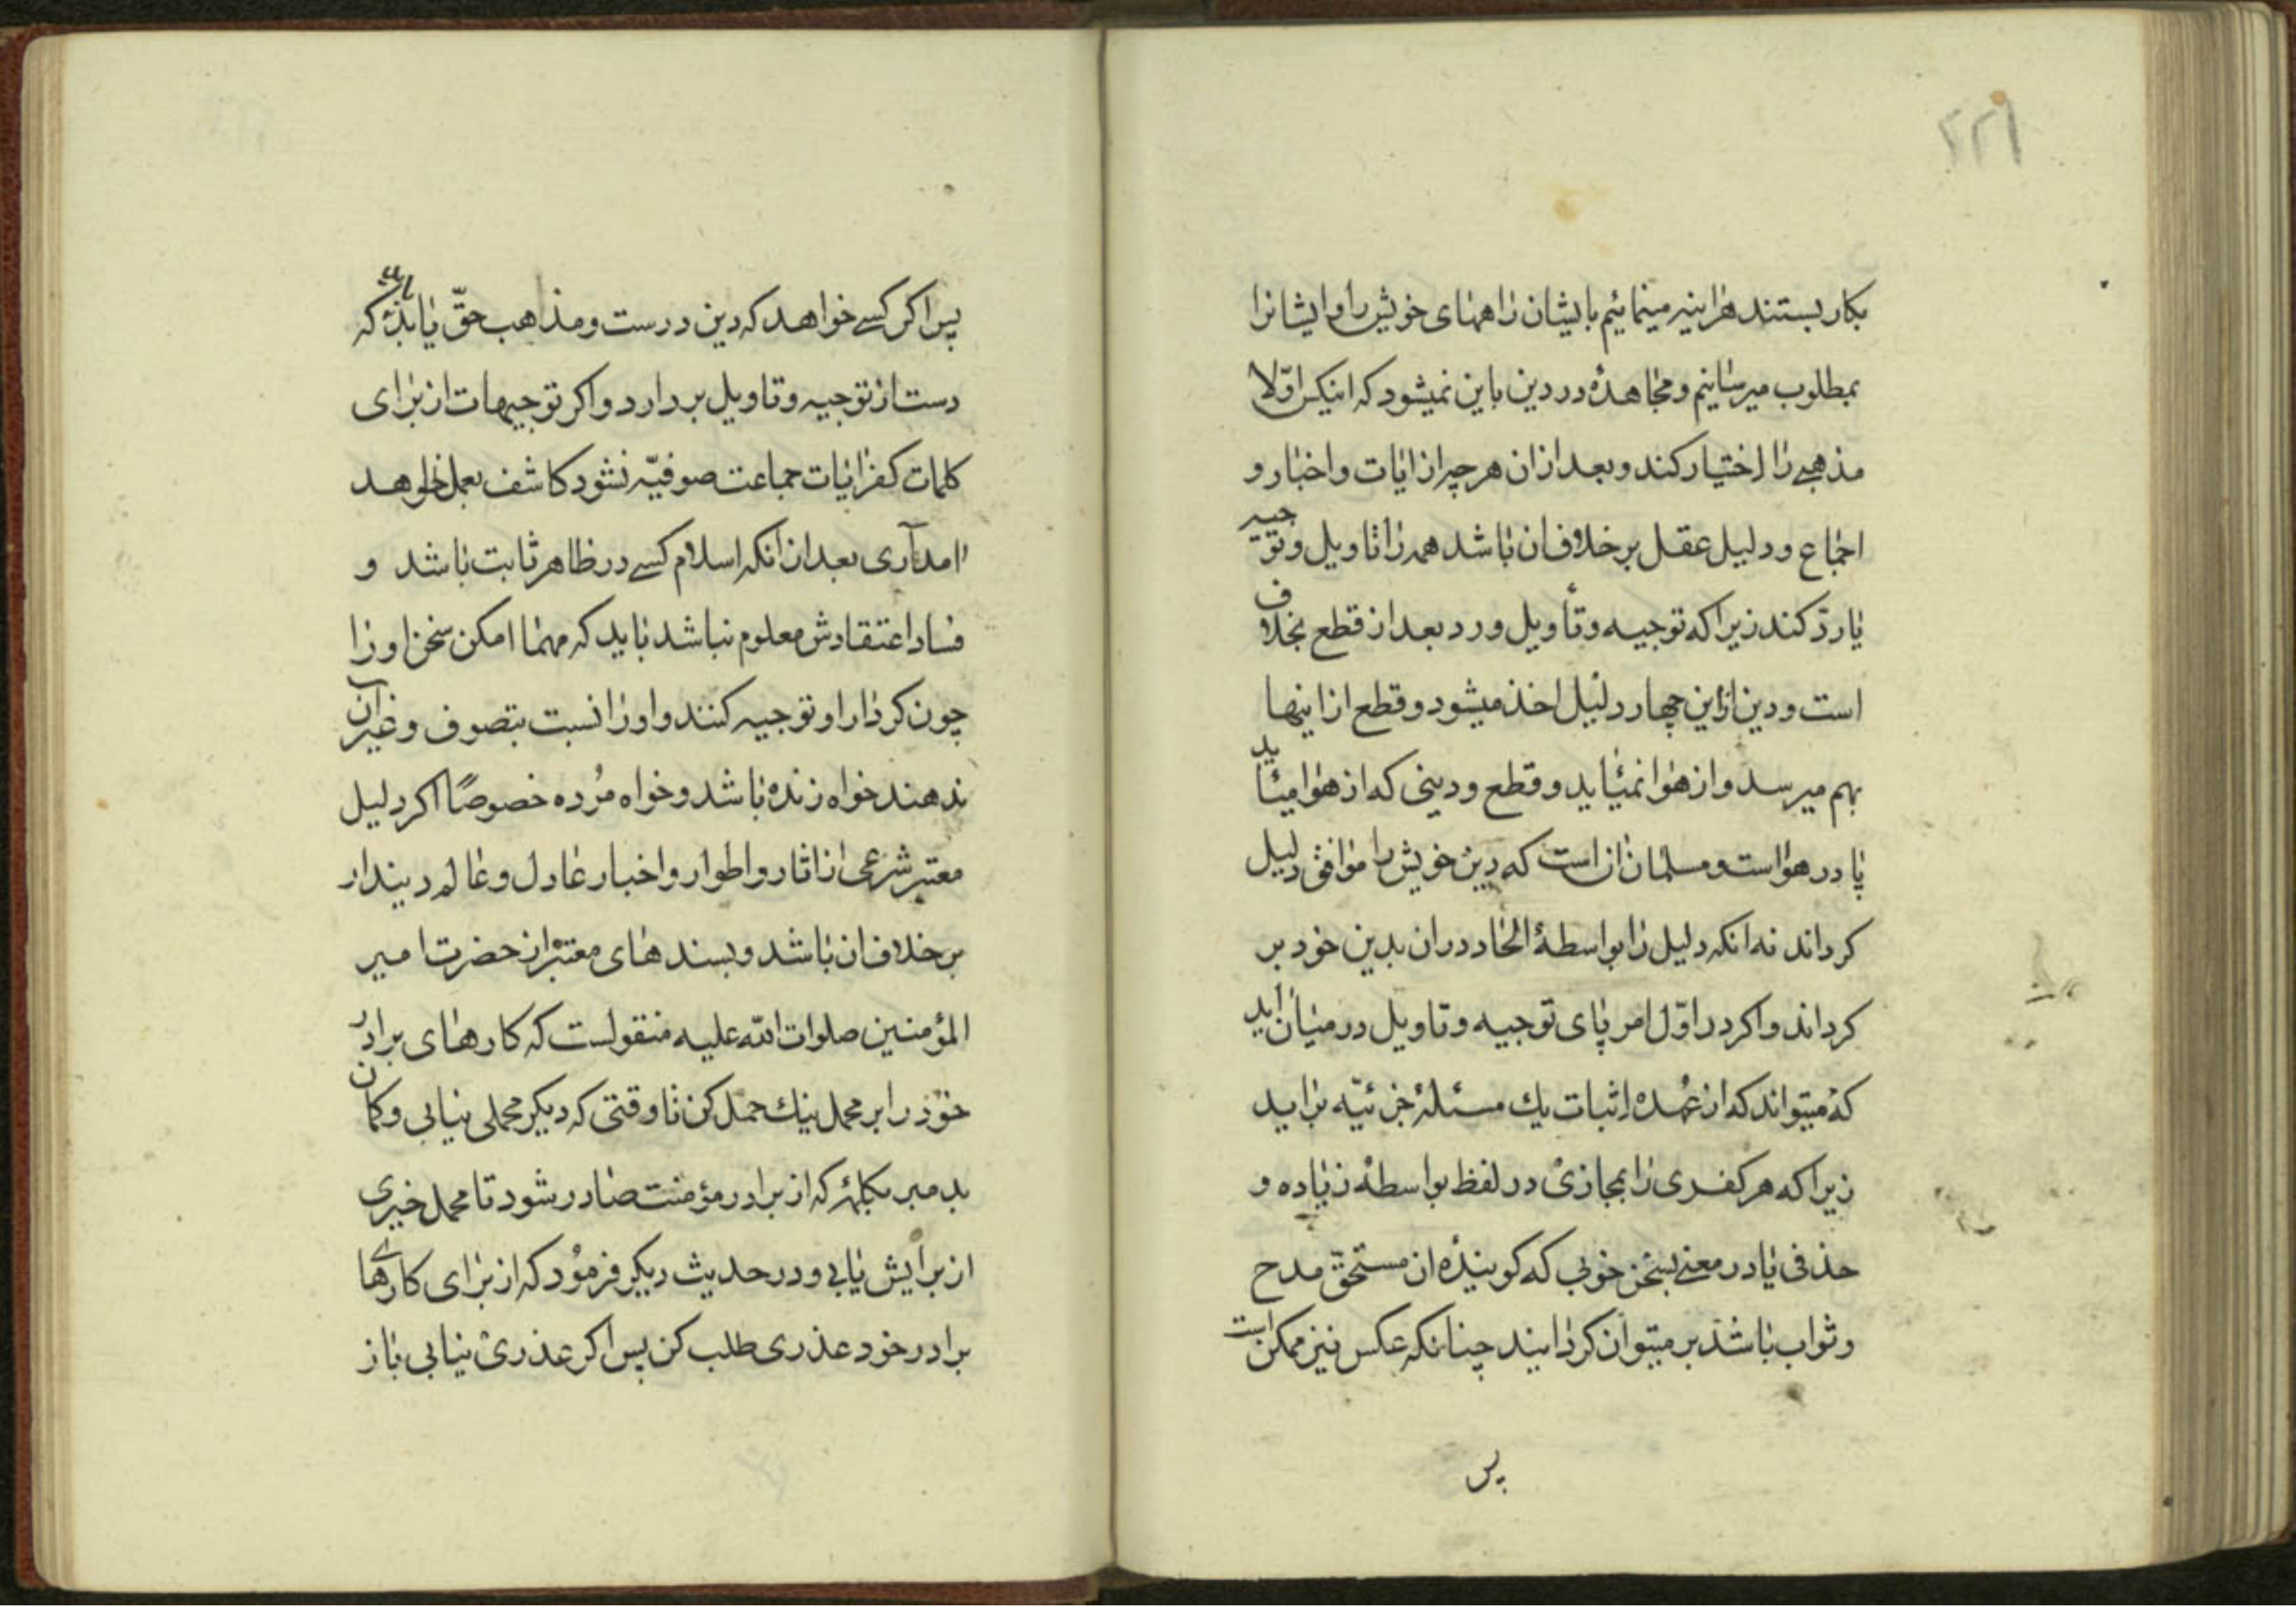 ۲۲۹
بکار بستند هراینه مینمائیم بایشان راههای خویش را و ایشانرا
بمطلوب میرسانیم و مجاهده در دین باین نمیشود که اینکس اوّلا
مذهبی را اختیار کند و بعد از ان هر چه از ایات و اخبار و
اجماع و دلیل عقل بر خلاف ان باشد همه را تاویل و توجیه
یا ردّ کند زیرا که توجیه و تأویل و رد بعد از قطع بخلاف
است و دین از این چهار دلیل اخذ میشود و قطع از اینها
بهم میرسد و از هوا نمیٔاید و قطع و دینی که از هوا میٔاید
پا در هواست و مسلمان ان است که دین خویش را موافق دلیل
کرداند نه انکه دلیل را بواسطهٔ الحاد در ان بدین خود بر
کرداند و اکر در اوّل امر پای توجیه و تاویل در میان اید
که میتواند که از عُهده اثبات یك مسئلهٔ جزئیّه براید
زیرا که هر کفری را بمجازی در لفظ بواسطهٔ زیاده و
حذفی یا در معنی بسخن خوبی که کویندهٔ ان مستحقّ مدح
و ثواب باشد بر میتوان کردانید چنانکه عکس نیز ممکن است
پس
پس اکر کسی خواهد که دین درست و مذاهب حقّ یابد باید که
دست از توجیه و تاویل بردارد و اکر توجیهات از برای
کلمات کفرایات جماعت صوفیّه نشود کاشف بعمل خواهد
امد آری بعد از آنکه اسلام کسی در ظاهر ثابت باشد و
فساد اعتقادش معلوم نباشد باید که مهما امکن سخن او را
چون کردار او توجیه کنند و او را نسبت بتصوف و غیر آن
ندهند خواه زنده باشد و خواه مُرده خصوصًا اکر دلیل
معتبر شرعی از اثار و اطوار و اخبار عادل و عالم دیندار
بر خلاف ان باشد و بسندهای معتبر از حضرت امیر
المؤمنین صلوات الله علیه منقولست که کارهای برادر
خود را بر محمل نیك حمل کن تا وقتی که دیکر محملی نیابی و کمان
بد مبر بکلمهٔ که از برادر مؤمنت صادر شود تا محمل خیری
از برایش یابی و در حدیث دیکر فرمُود که از برای کارهای
برادر خود عذری طلب کن پس اکر عذری نیابی باز